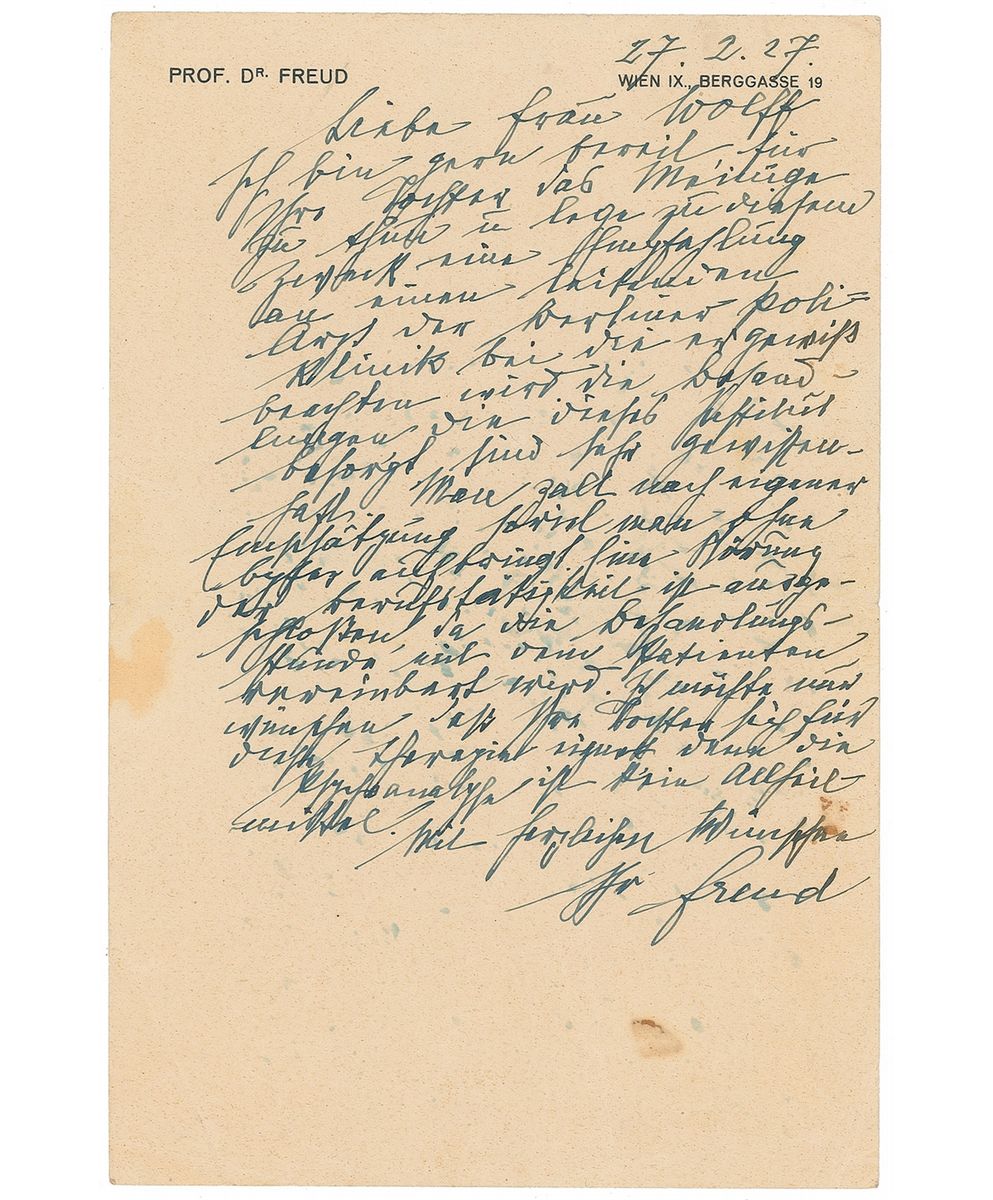 27. 2. 27.
PROF. DR. FREUD
WIEN IX., BERGGASSE 19
Liebe Frau Wolff
Ich bin gern bereit, für
Ihre Tochter das Meinige
zu thun u lege zu diesem
Zweck eine Empfehlung
an einen leitenden
Arzt der Berliner Poli=
klinik bei die er gewiß
beachten wird die Behand-
lungen die dieses Institut
besorgt sind sehr gewissen-
haft. Man zalt nach eigener
Einschätzung soviel man ohne
Opfer aufbringt. Eine Störung
der Berufstätigkeit ist ausge-
schloßen, da die Behandlungs-
stunde mit dem Patienten
vereinbart wird. Ich möchte nur
wünschen daß Ihre Tochter sich für
diese Therapie eignet denn die
Psychoanalyse ist kein Allheil-
mittel.
Mit herzlichen Wünschen
Ihr Freud